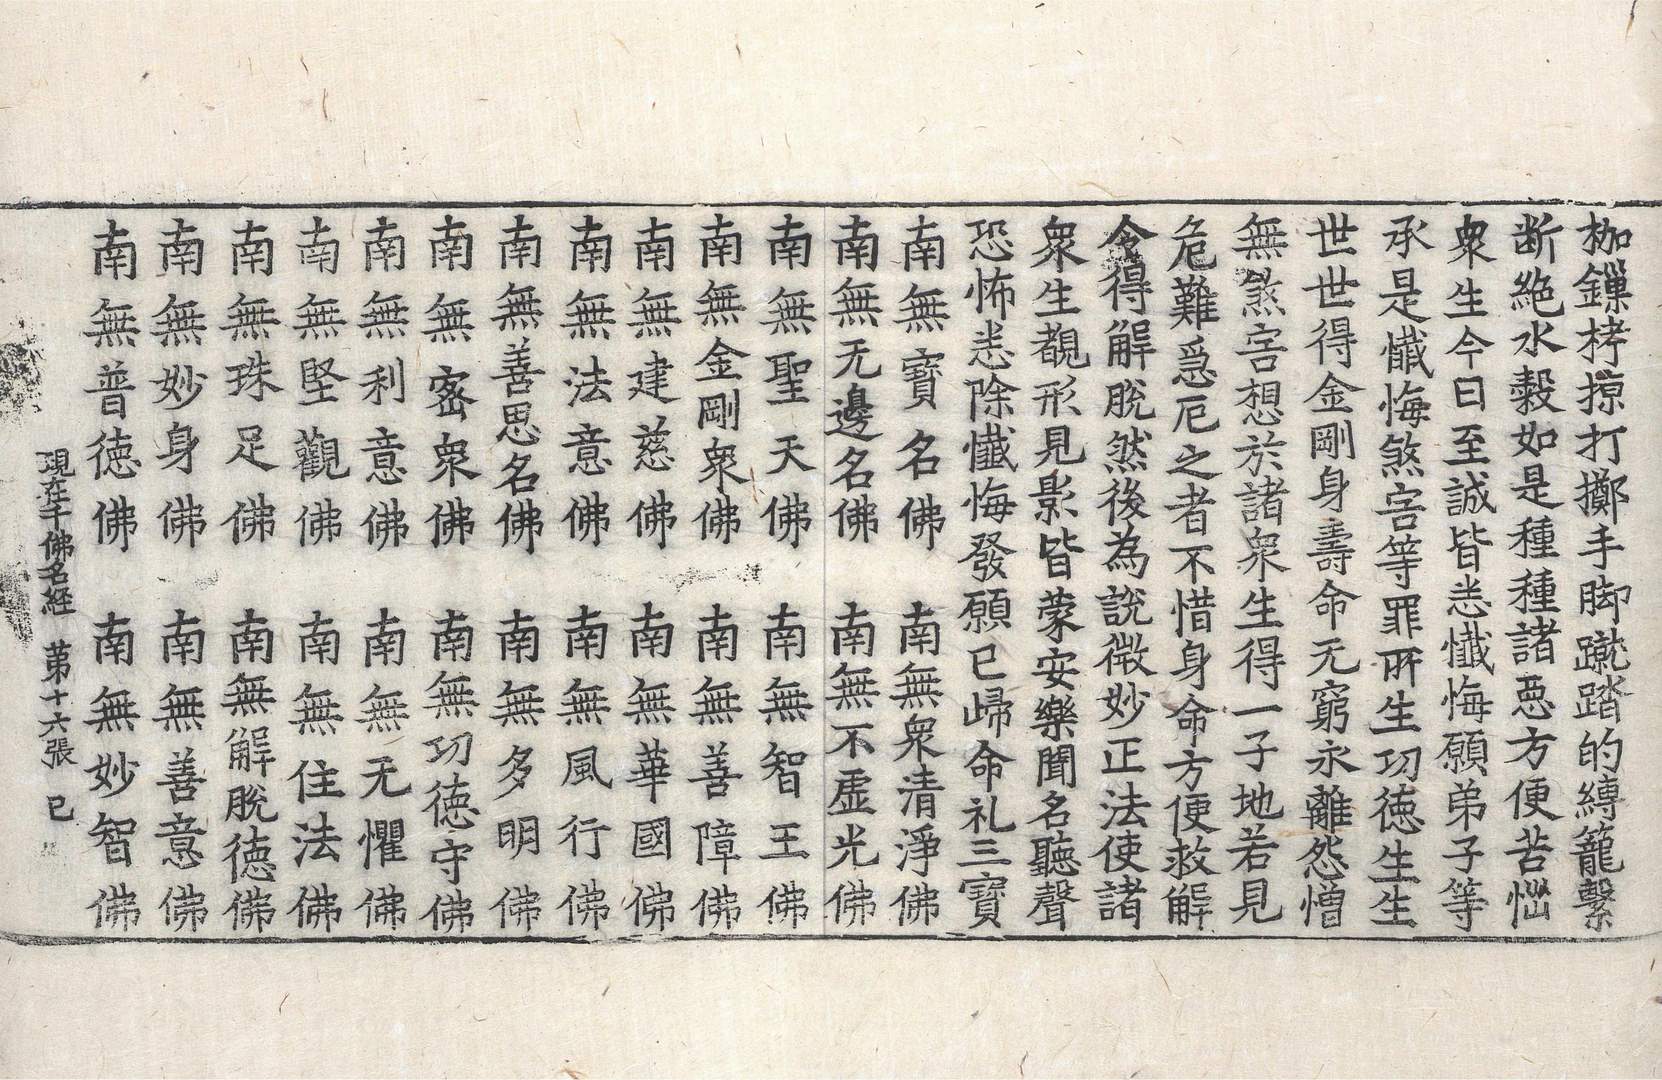 枷鏁栲掠打擲手脚蹴踏的縛籠繫
断絶水穀如是種種諸惡方便苦惱
衆生今日至誠皆悉懺悔願弟子等
承是懺悔煞害等罪所生功徳生生
世世得金剛身壽命无窮永離怨憎
無煞害想於諸衆生得一子地若見
危難急厄之者不惜身命方便救解
令得解脫然後為說微妙正法使諸
衆生覩形見影皆蒙安樂聞名聽聲
恐怖悉除懺悔發願已歸命礼三寶
南無寶名佛　南無衆清淨佛
南無无邊名佛　南無不虛光佛
南無聖天佛　南無智王佛
南無金剛衆佛　南無善障佛
南無建慈佛　南無華國佛
南無法意佛　南無風行佛
南無善思名佛　南無多明佛
南無密衆佛　南無功徳守佛
南無利意佛　南無无懼佛
南無堅觀佛　南無住法佛
南無珠足佛　南無解脫徳佛
南無妙身佛　南無善意佛
南無普徳佛　南無妙智佛
現在千佛名経　第十六張　已